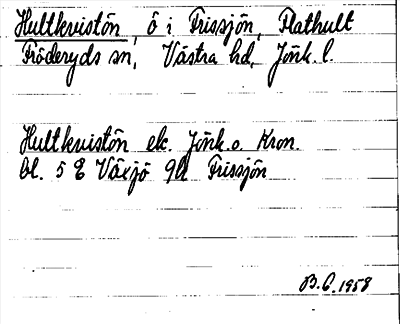 Hultkvistön, ö i Frissjön, Flathult
Fröderyds sn, Västra hd, Jönk. l.
Hultkvistön ek. Jönk. o. Kron.
bl. 5 E Växjö 9b Frissjön
B.O. 1958